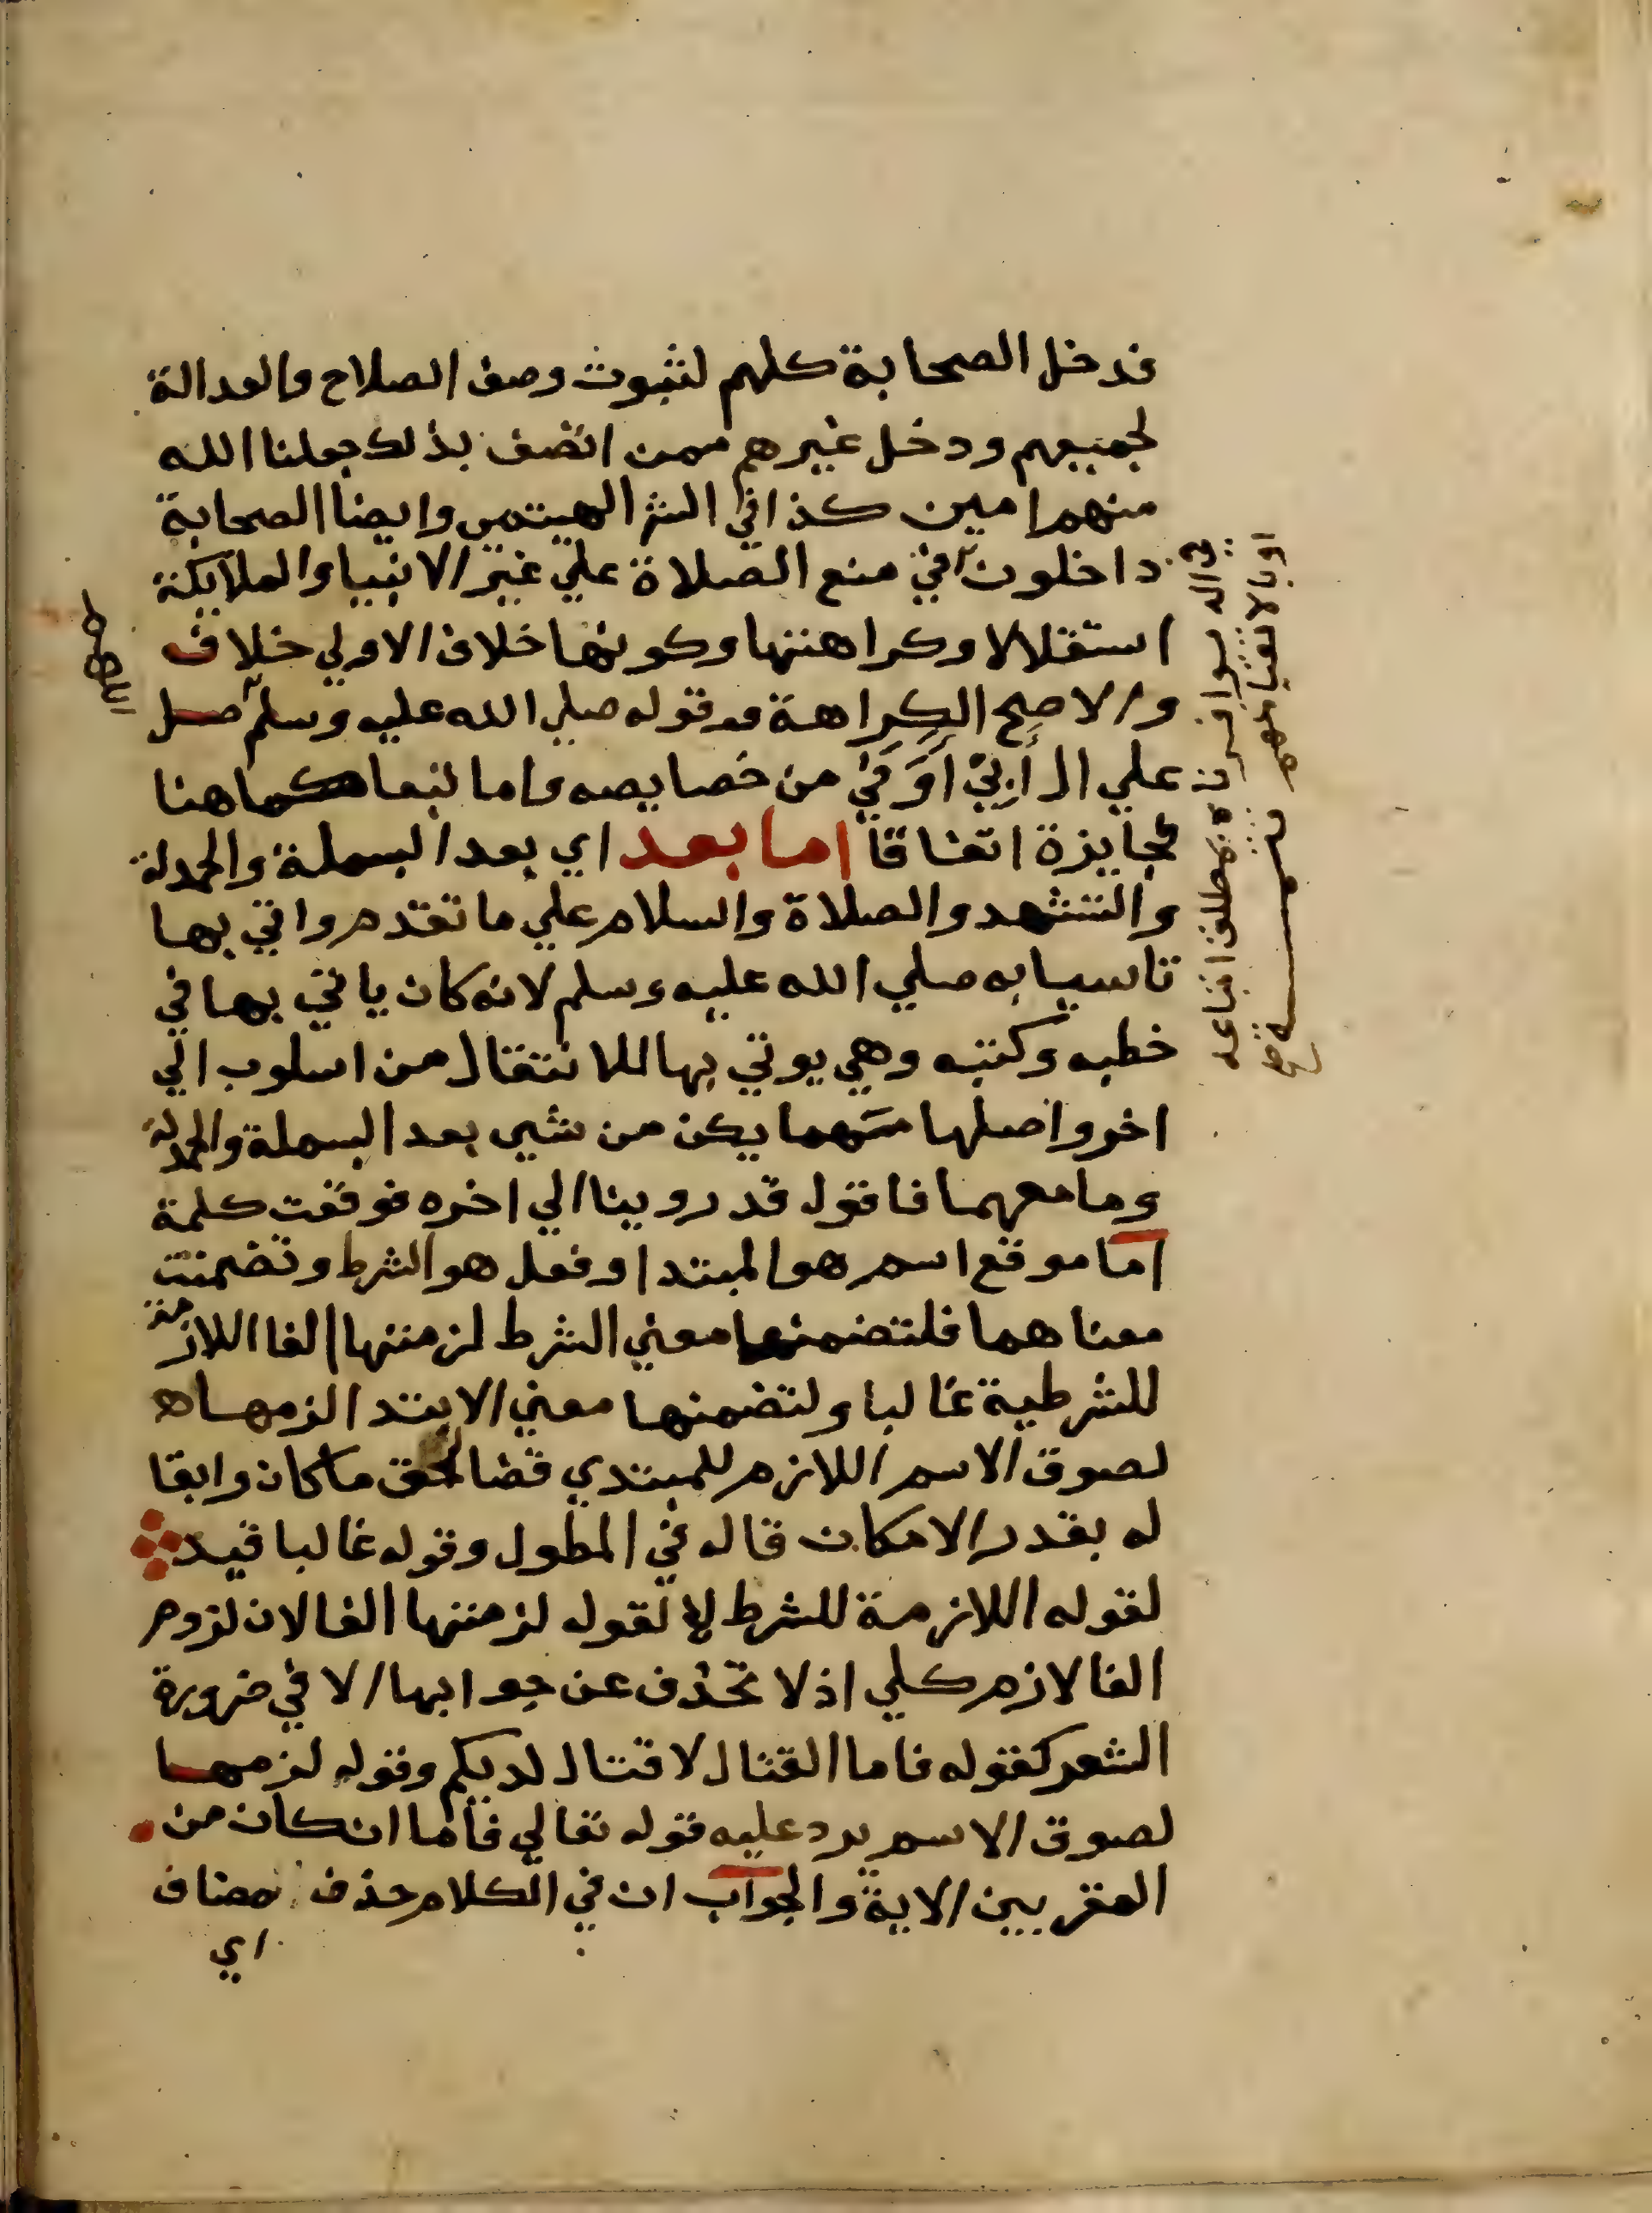 فدخل الصحابة كلهم لثبوت وصف الصلاح والعدالة
لجميعهم ودخل غيرهم ممن اتصف بذلك جعلنا الله
منهم امين كذا في الشر الهيتمي وايضا الصحابة
داخلون في منع الصلاة علي غير الانبيا والملايكة
استقلالا وكراهتها وكونها خلاف الاولي خلاف
والاصح الكراهة وقوله صلي الله عليه وسلم صل
علي ال ابي اوفي من خصايصه واما تبعا كما هنا
فجايزة اتفاقا اما بعد اي بعد البسملة والحمدلة
والتشهد والصلاة والسلام علي ما تقدم واتي بها
تاسيا به صلي الله عليه وسلم لانه كان ياتي بها في
خطبه وكتبه وهي يوتي بها للانتقال من اسلوب الي
اخر واصلها مهما يكن من شي بعد البسملة والحمدلة
وما معهما فاقول قد روينا الي اخره فوقعت كلمة
اما موقع اسم هو المبتدا وفعل هو الشرط وتضمنت
معناهما فلتضمنها معني الشرط لزمتها الفا اللازمة
للشرطية غالبا ولتضمنها معني الابتدا لزمها
لصوق الاسم اللازم للمبتدي قضا لحق ما كان وابقا
له بقدر الامكان قاله في المطول وقوله غالبا قيد
لقوله اللازمة للشرط لا لقوله لزمتها الفا لان لزوم
الفا لازم كلي اذ لا تحذف عن جوابها الا في ضرورة
الشعر كقوله فاما القتال لا قتال لديكم وقوله لزمها
لصوق الاسم يرد عليه قوله تعالي فاما ان كان من
المقربين الاية والجواب ان في الكلام حذف مضاف
اي